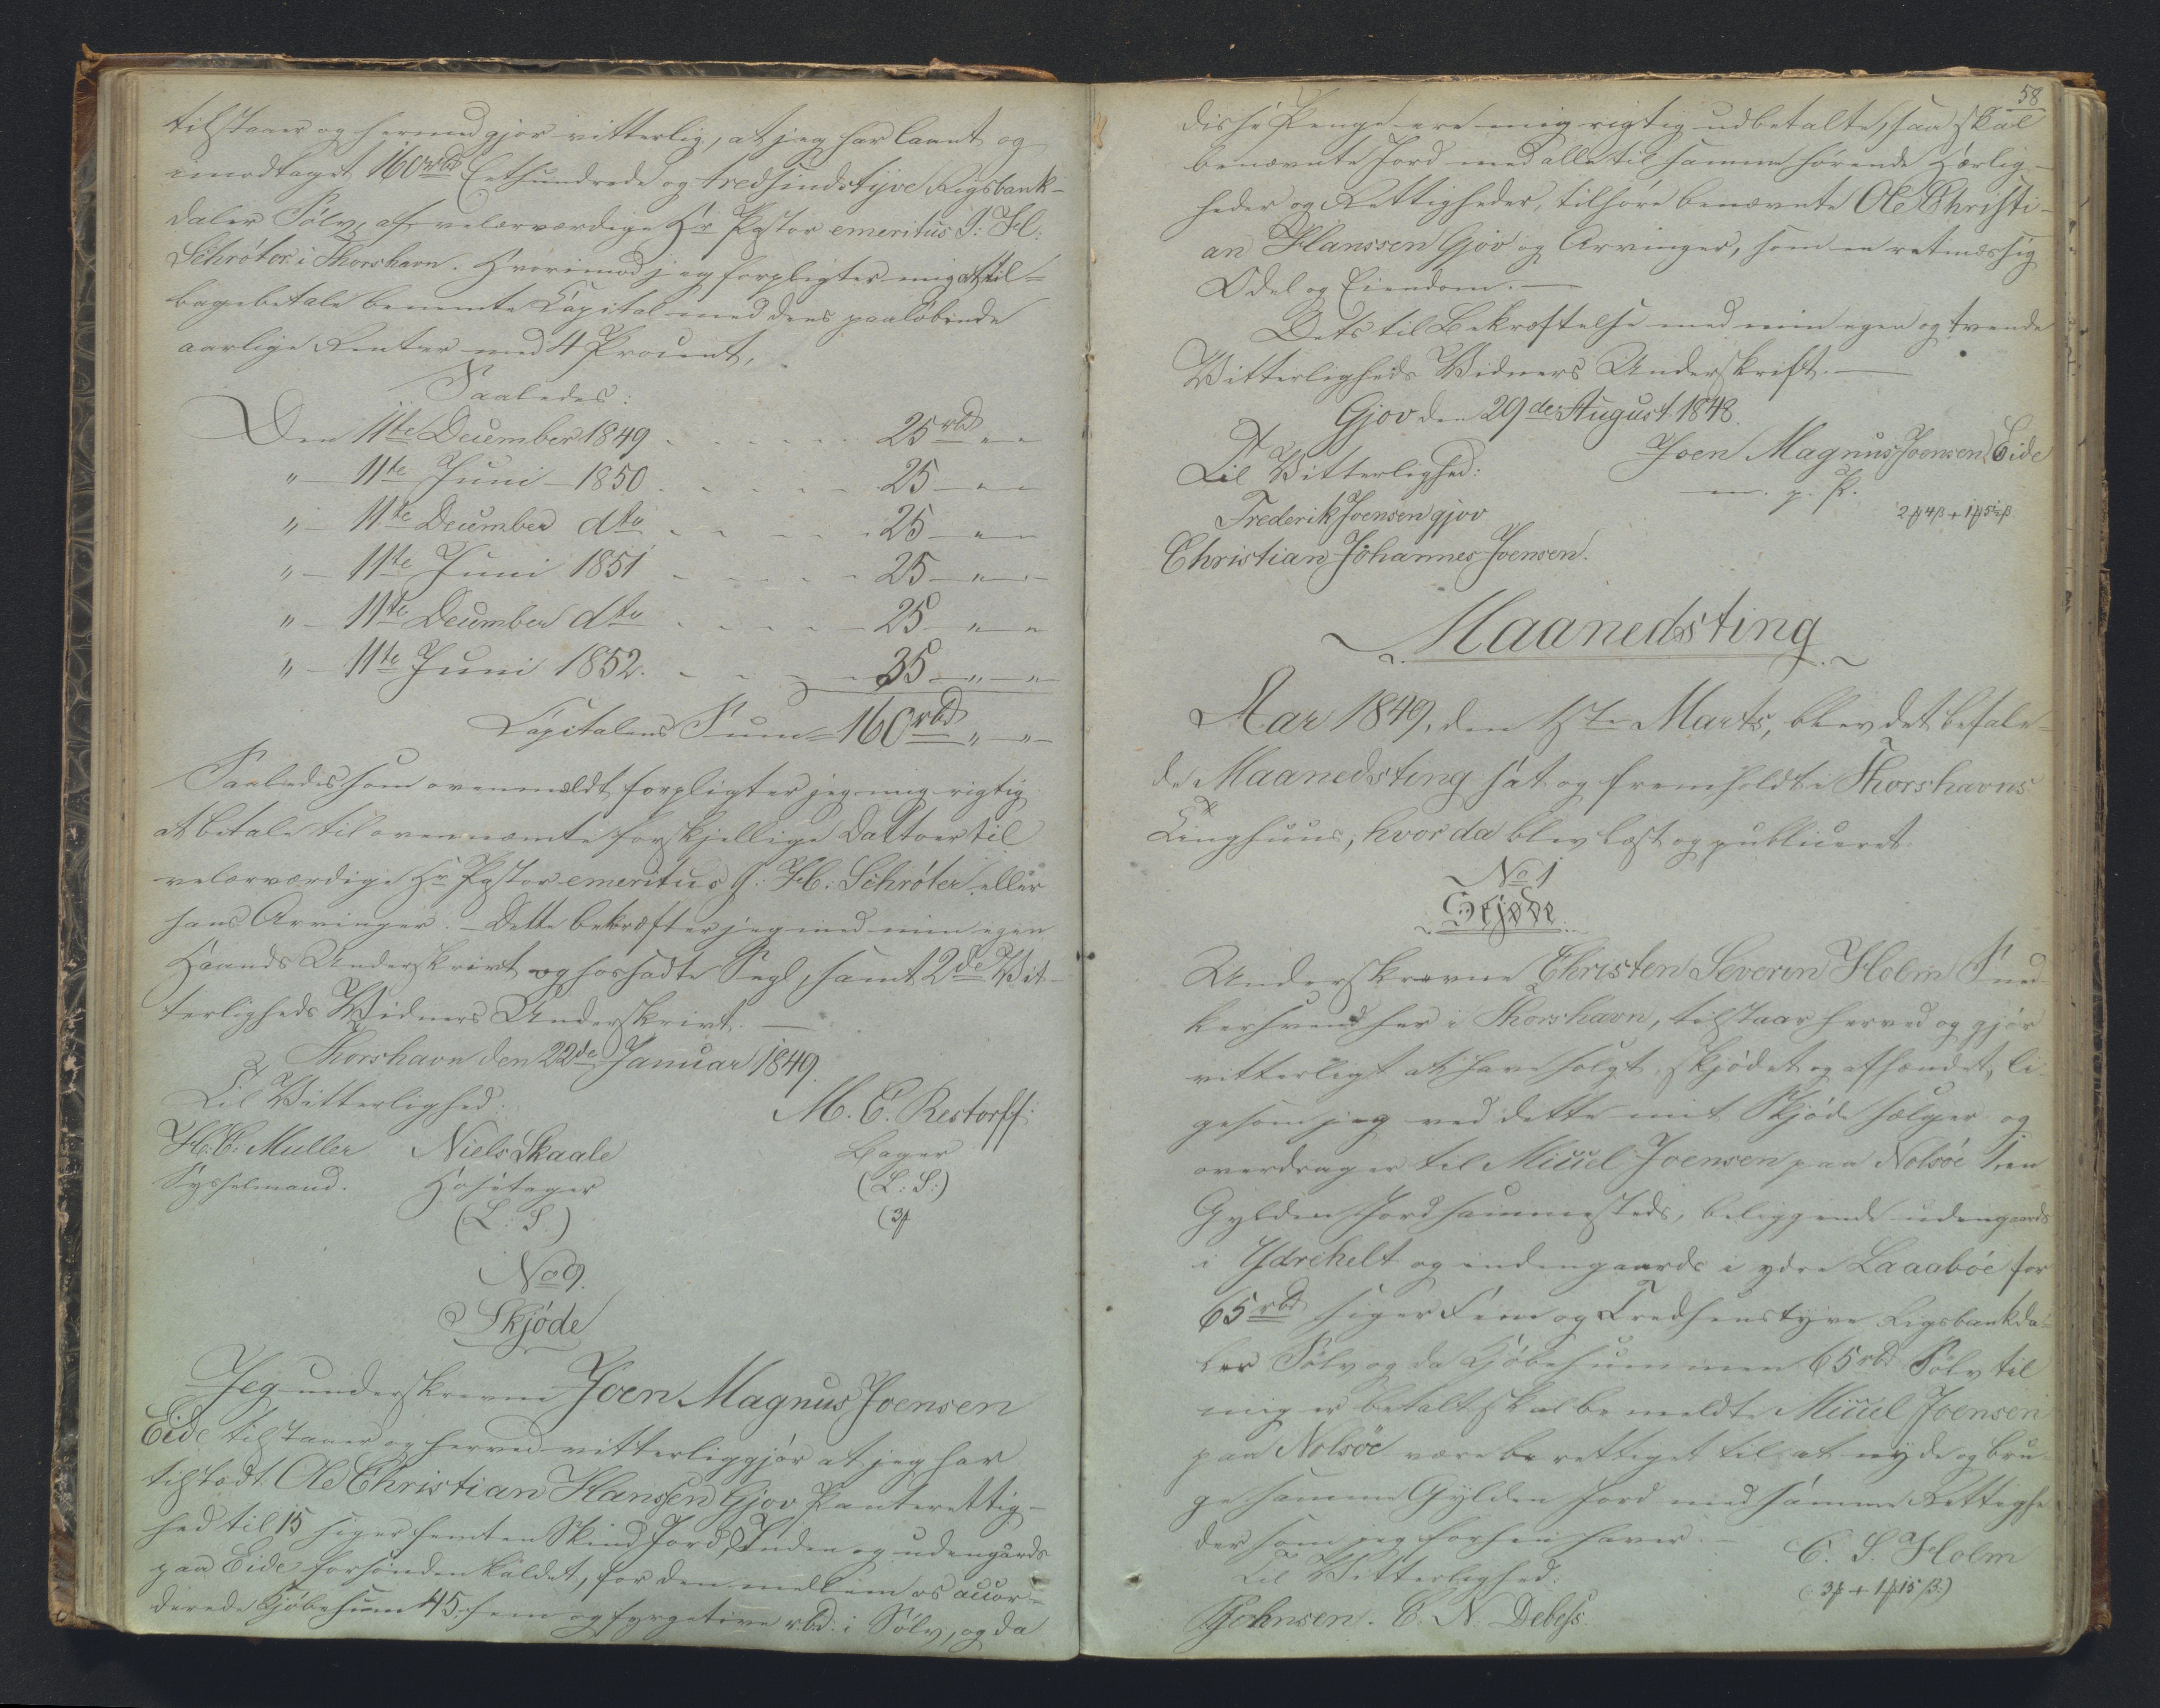 tilstaaer og hermed gjør vitterlig, at jeg har laant og
imodtaget 160 rbd Eethundrede og tredsindstyve Rigsbank-
daler Sølv, af velærværdige Hr Pastor emeritus J: H:
Schrøter i Thorshavn. Hvorimod jeg forpligter mig at til-
bagebetale benævnte Capital med dens paaløbende
aarlige Renter med 4 Procent,
Saaledes:
Den 11te December 1849 . . . . . . 25 rbd " "
" — 11te Juni — 1850 . . . . . 25 — " "
" — 11te December dto . . . . . 25 — " "
" — 11te Juni 1851 . . . . . 25 — " —
" — 11te December dto . . . . . 25 — " "
" — 11te Juni 1852. . . . . 35 — " — "
Capitalens Sum = 160 rbd " — " —
Saaledes som ovenmeldt forpligter jeg mig rigtig
at betale til ovennævnte forskjellige Dattoer til
velærværdige Hr Pastor emeritus J: H: Schrøter eller
hans Arvinger. — Dette bekræfter jeg med min egen
Haands Underskrivt og hossadte Segl, samt 2de Vit-
terligheds Vidners Underskrivt. —
Thorshavn den 22de Januar 1849.
Til Vitterlighed:
M. C. Restorff.
H: C: Muller Niels Skaale
Bager
Sysselmand.
(L: S:)
(L: S.)
(3f
No 9.
Skjøde
Jeg underskrevne Joen Magnus Joensen
Eide tilstaaer og herved vitterliggjør at jeg har
tilstædt Ole Christian Hanssen Gjov Panterettig-
hed til 15 siger femten Skind Jord, Inden og udengaards
paa Eide forsonden kaldet, for den mellem os accor-
derede Kjøbesum 45, fem og fyrgetive rbd: i Sølv, og da
58
disse Penge ere mig rigtig udbetalte, saa skal
benævnte Jord med alle til samme hørende Herlig-
heder og Rettigheder, tilhøre benævnte Ole Christi-
an Hanssen Gjov og Arvinger, som en retmæssig
Odel og Eiendom. —
Dets til Bekræftelse med min egen og tvende
Vitterligheds Vidners Underskrift. —
Gjov den 29de August 1848.
Joen Magnus Joensen Eide
Til Vitterlighed:
m. p. P.
Frederik Joensen gjov
2f 4β + 1f 5½β
Christian Johannes Joensen.
Maanedsting
Aar 1849, den Marts, blev det befale-
de Maanedsting sat og fremholdt i Thorshavns
Tinghuus, hvor da blev læst og publiceret:
No 1
Skjøde
Underskrevne Christen Severin Holm Sned-
kersvend her i Thorshavn, tilstaar herved og gjør
vitterligt at have solgt, skjødet og afhændet, li-
gesom jeg ved dette mit Skjøde sælger og
overdrager til Miccel Joensen paa Nolsøe 1 en
Gylden Jord sammesteds, beliggende udengaards
i Ydrehelt og indengaards i ydre Laaabøe for
65 rbd siger Fem og Tredsenstyve Rigsbankda-
ler Sølv og da Kjøbesummen 65 rbd Sølv til
mig er betalt skal bemeldte Miccel Joensen
paa Nolsöe være berettiget til at nyde og bru-
ge samme Gylden Jord med samme Rettighe-
der som jeg forhen haver. —
C. S. Holm
Til Vitterlighed:
(3f + 1f 15 β.)
Johnsen. C. N. Debess.